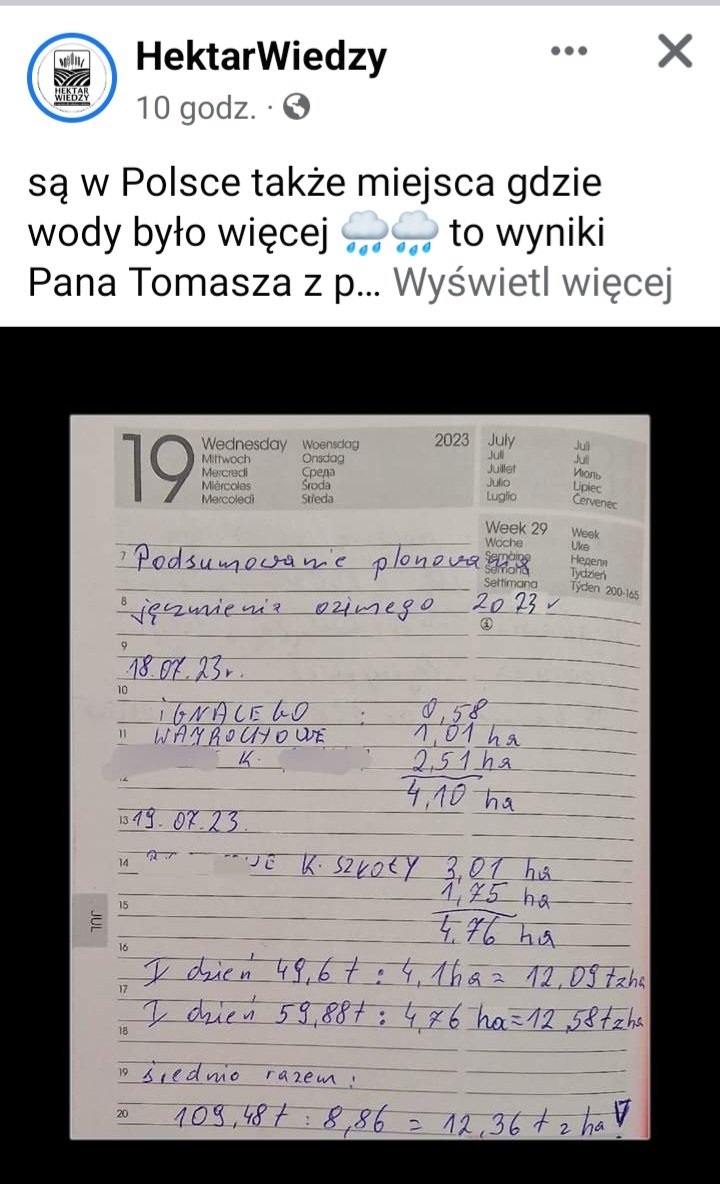 HektarWiedzy
HEKTAR
WIEDZY
10 godz. ·
są w Polsce także miejsca gdzie
wody było więcej 🌧️🌧️ to wyniki
Pana Tomasza z p... Wyświetl więcej
19
Wednesday Woensdag 2023 July Juli
Mittwoch Onsdag Juli Juli
Mercredi Среда Juillet Июль
Miércoles Środa Julio Lipiec
Mercoledì Středa Luglio Červenec
Week 29 Week
Woche Uke
Semaine Неделя
Semana Tydzień
Settimana Týden 200-165
7 Podsumowanie plonowania
8 jęczmienia ozimego 2023
9
18.07.23r.
10
IGNACEGO : 0,58
11 1,01 ha
K. 2,51 ha
12
4,10 ha
13 19.07.23.
14 K. SZKOŁY 3,01 ha
1,75 ha
15
4,76 ha
JUL
16
I dzień 49,6 t : 4,1ha = 12,09 t z ha
17
I dzień 59,88t : 4,76 ha = 12,58 t z ha
18
19 średnio razem:
20 109,48t : 8,86 = 12,36 t z ha!